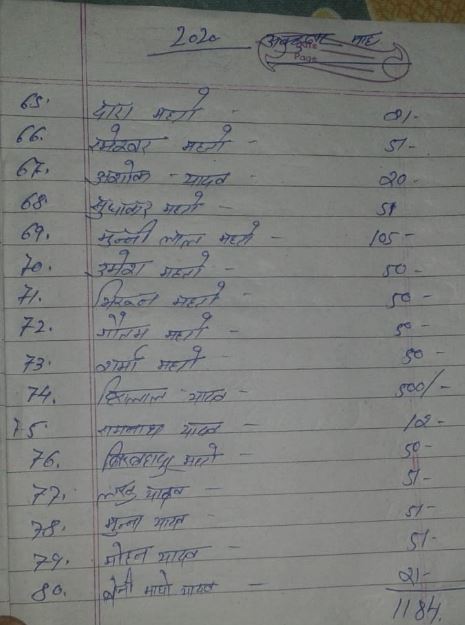 2020 अक्टूबर माह
Date
Page
65. दारा महतो - 01-
66. रमेश्वर महतो - 51-
67. अशोक यादव - 20-
68. सुधाकर महतो - 51
69. मुन्नी लाल महतो - 105-
70. उमेश महतो - 50-
71. भिखन महतो - 50-
72. गौतम महतो - 50-
73. शर्मा महतो - 50-
74. हिरालाल यादव - 500/-
75. रामनाथ यादव - 12-
76. महतो - 50-
77. यादव - 51-
78. मुन्ना यादव - 51-
79. मोहन यादव - 51-
80. बेनी माधो यादव - 21-
1184.